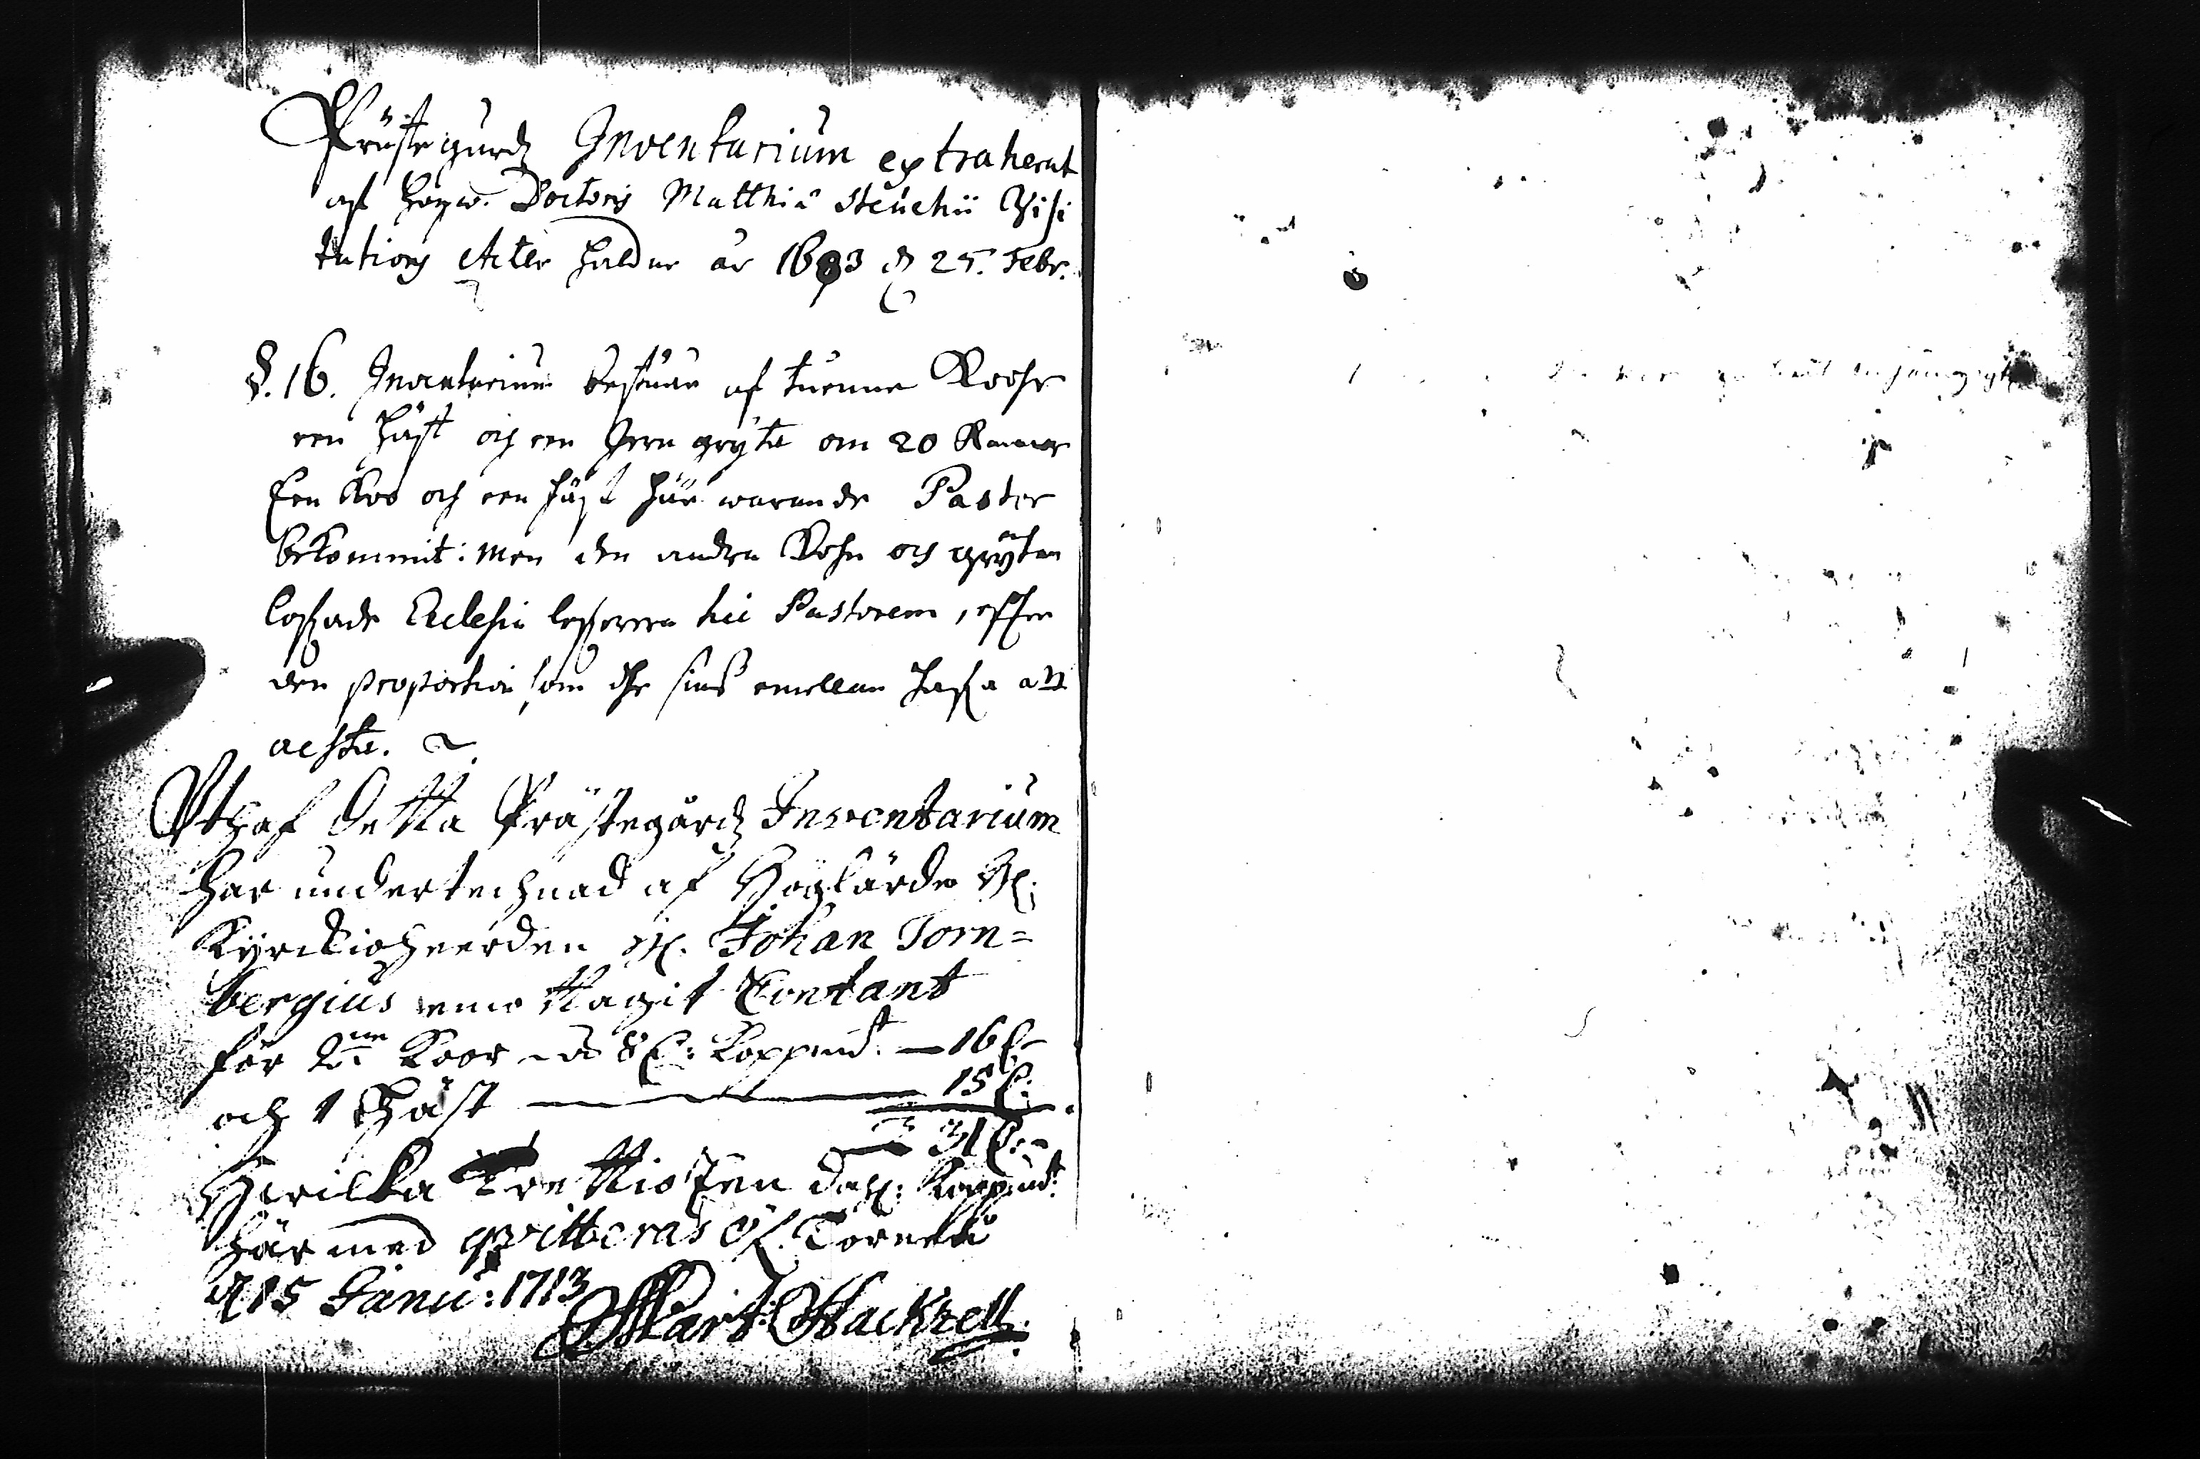 Prästegårdz Inventarium extraherat
aff Högw. Doctoris Matthiæ Steuchii Visi
tations Acter holdne år 1683 d. 25. Febr.
§. 16. Inventarium bestuår af tuenne Koohr
een häst och een Jern gryta om 20 Kannor
Een Koo och een häst här warande Pastor
bekommit: Men den andra Kohn och grytan
lofwade Ecclesia lefwerera hic Pastorem, efter
den proportion som the sins emellan hafwa att
aesta.
Uthaf detta Prästegårdz Inventarium
har undertechnad af Höglärde H:
Kyrckioheerden H. Johan Torn=
bergius emottagit Contant
för 2ne Koor a 8 D: Koppmt: — 16 D
och 1 Häst — 15 D:
31 D:
Hwilka Trettio Een dahl: Koppmt:
här med qvitteras Öf. Torneå
d 15 Janu: 1713
Mart Hackzell.